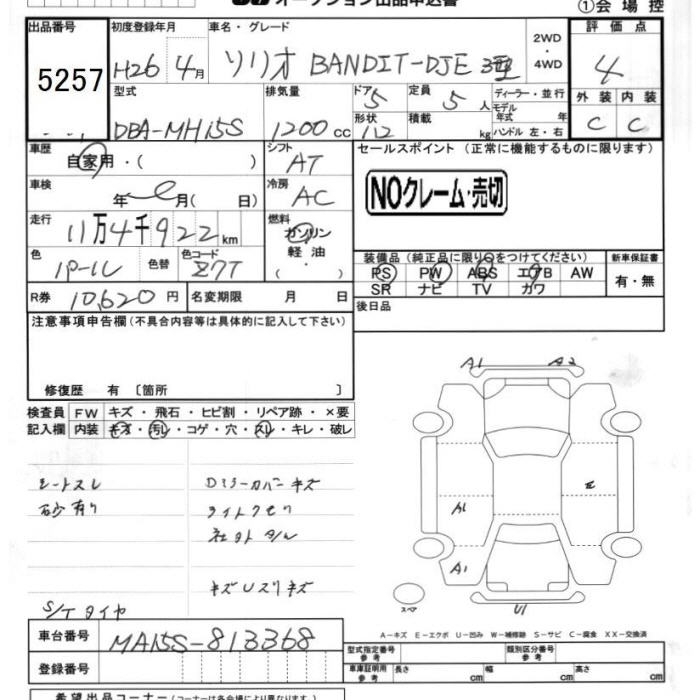 オークション出品申込書
①会場控
出品番号 初度登録年月 車名・グレード 2WD・4WD 評価点
5257 H26 4月 ソリオ BANDIT-DJE 3型 4
型式 排気量 ドア 5 定員 5人 ディーラー・並行 外装 内装
モデル年式 年
DBA-MH15S 1200cc 形状 積載 kg ハンドル 左・右 C C
車歴 自家用・( ) シフト AT セールスポイント (正常に機能するものに限ります)
車検 年 月( 日) 冷房 AC NOクレーム・売切
走行 11万4千922km 燃料 ガソリン
軽油・
色 色替 色コード Z7T 装備品 (純正品に限り○をつけてください) 新車保証書
PS PW ABS エアB AW 有・無
SR ナビ TV カワ
R券 10,620円 名変期限 月 日 後日品
注意事項申告欄 (不具合内容等は具体的に記入して下さい)
修復歴 有 〔箇所 〕
検査員 FW キズ・飛石・ヒビ割・リペア跡・×要
記入欄 内装 キズ・汚レ・コゲ・穴・スレ・キレ・破レ
A1 A2
シートスレ Dミラーカバーキズ
砂有り ライトクモリ
A1 E
A1
キズUスリキズ
スペア U1
S/Tタイヤ
A－キズ E－エクボ U－凹み W－補修跡 S－サビ C－腐食 XX－交換済
車台番号 MA15S-813368 型式指定番号 参考 類別区分番号 参考
登録番号 車庫証明用 参考 長さ cm 幅 cm 高さ cm
希望出品コーナー (内容は各会場により異なります。)